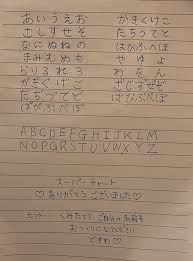 あいうえお かきくけこ
さしすせそ たちつてと
なにぬねの はひふへほ
まみむめも やゆよ
らりるれろ わをん
がぎぐげご ざじずぜぞ
だぢづでど ばびぶべぼ
ぱぴぷぺぽ
ABCDEFGHIJKLM
NOPQRSTUVWXYZ
スーパーチャット
♡ありがとうございました♡
ヒント くみたてて ご自分の名前を
おつくりになってください
ですわ♡